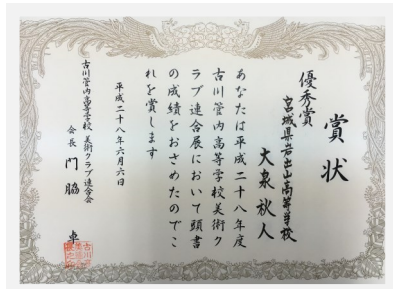 賞状
優秀賞
宮城県岩出山高等学校
大泉秋人
あなたは平成二十八年度
古川管内高等学校美術ク
ラブ連合展において頭書
の成績をおさめたのでこ
れを賞します
平成二十八年六月六日
古川管内高等学校美術クラブ連合会
会長 門脇